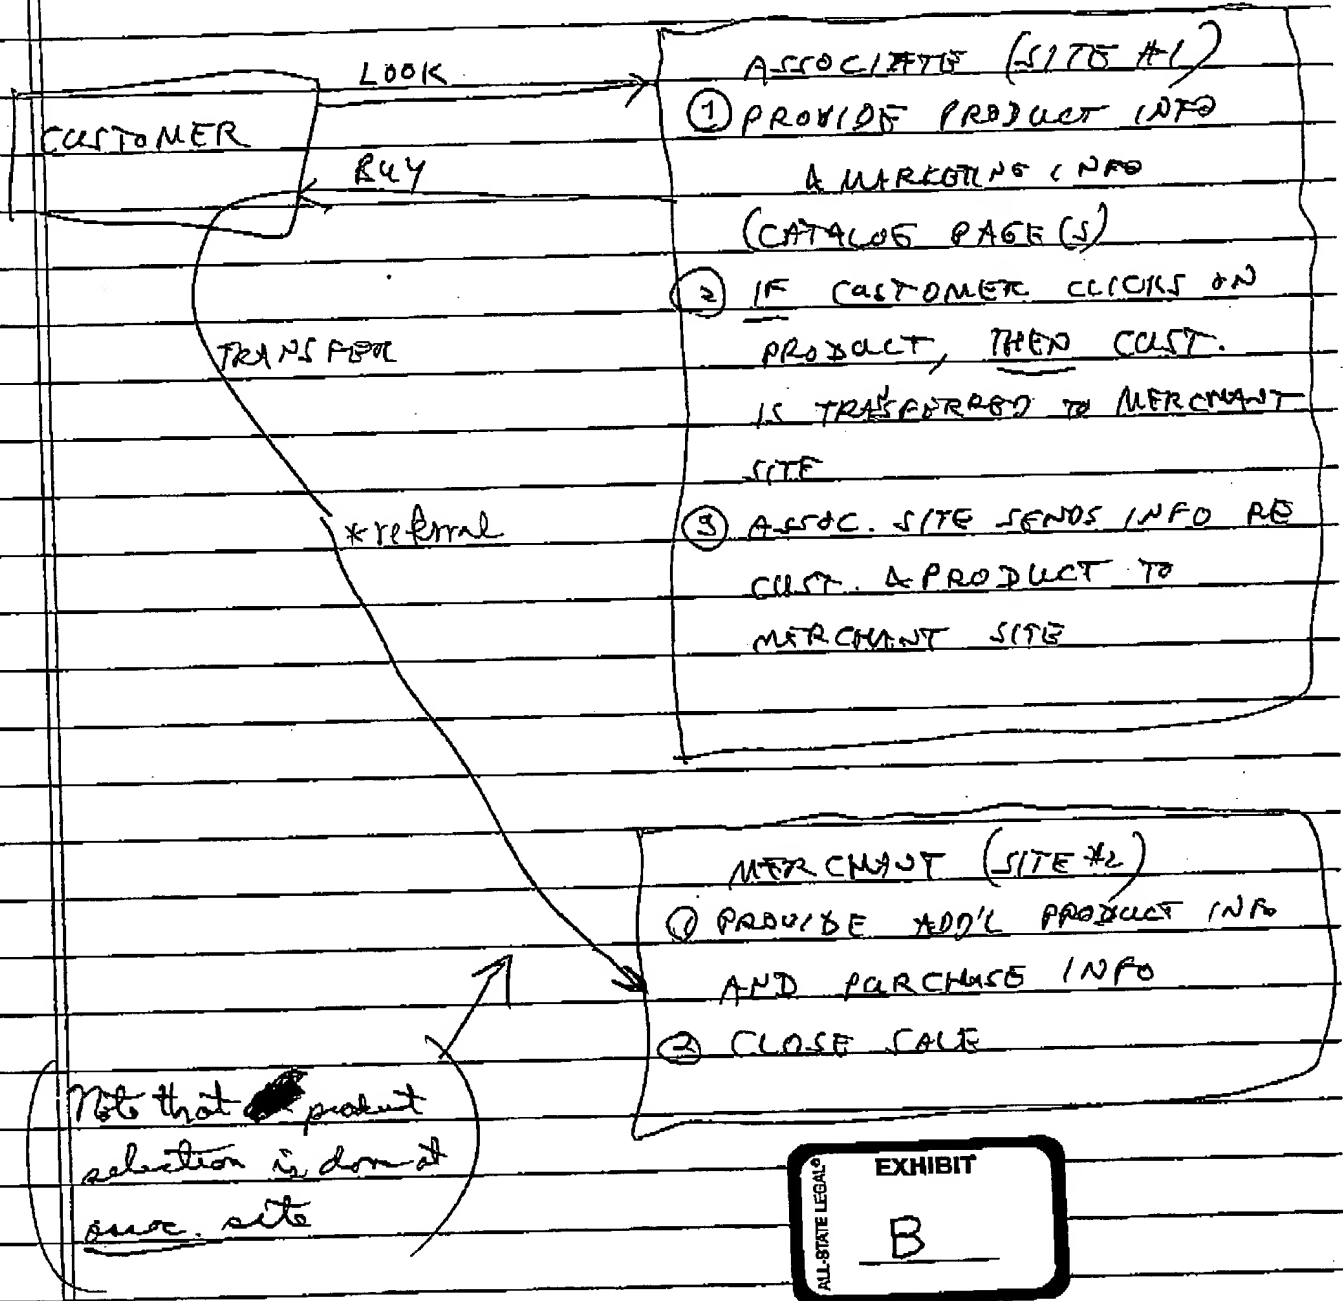 LOOK
CUSTOMER
BUY
TRANSFER
*referral
ASSOCIATE (SITE #1)
① PROVIDE PRODUCT INFO
& MARKETING INFO
(CATALOG PAGE(S)
② IF CUSTOMER CLICKS ON
PRODUCT, THEN CUST.
IS TRANSFERRED TO MERCHANT
SITE
③ ASSOC. SITE SENDS INFO RE
CUST. & PRODUCT TO
MERCHANT SITE
MERCHANT (SITE #2)
① PROVIDE ADD'L PRODUCT INFO
AND PURCHASE INFO
② CLOSE SALE
Note that product
selection is done at
assoc. site
ALL-STATE LEGAL®
EXHIBIT
B